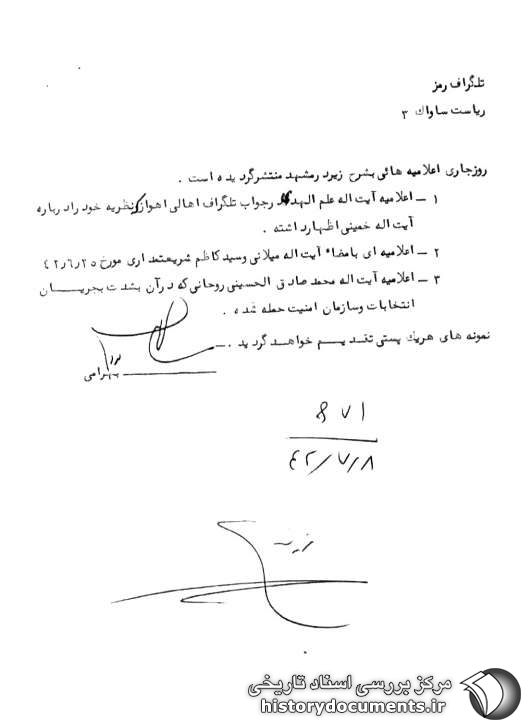 تلگراف رمز
ریاست ساواک ۳
روزجاری اعلامیه هائی بشرح زیرد رمشهد منتشرگردیده است .
۱ – اعلامیه آیت اله علم الهدی رجواب تلگراف اهالی اهوازکه نظریه خود رادرباره
آیت اله خمینی اظهارد اشته .
۲ – اعلامیه ای بامضاء آیت اله میلانی وسید کاظم شریعتمداری مورخ ۴۲٫۶٫۲۵
۳ – اعلامیه آیت اله محمد صادق الحسینی روحانی که درآن بشدت بجریــان
انتخابات وسازمان امنیت حمله شده .
نمونه های هریک پستی تقدیـم خواهـد گردید .–
بهرامی
۸۷۱
۴۲/۷/۸
مرکز بررسی اسناد تاریخی
historydocuments.ir